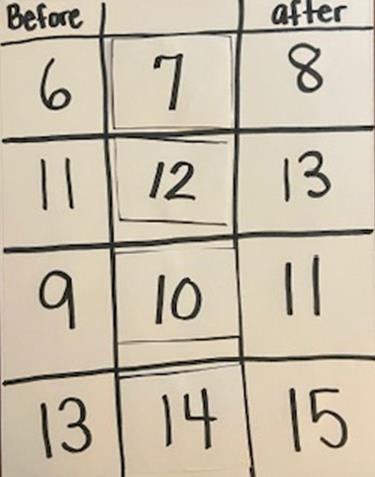 Before after
6 7 8
11 12 13
9 10 11
13 14 15